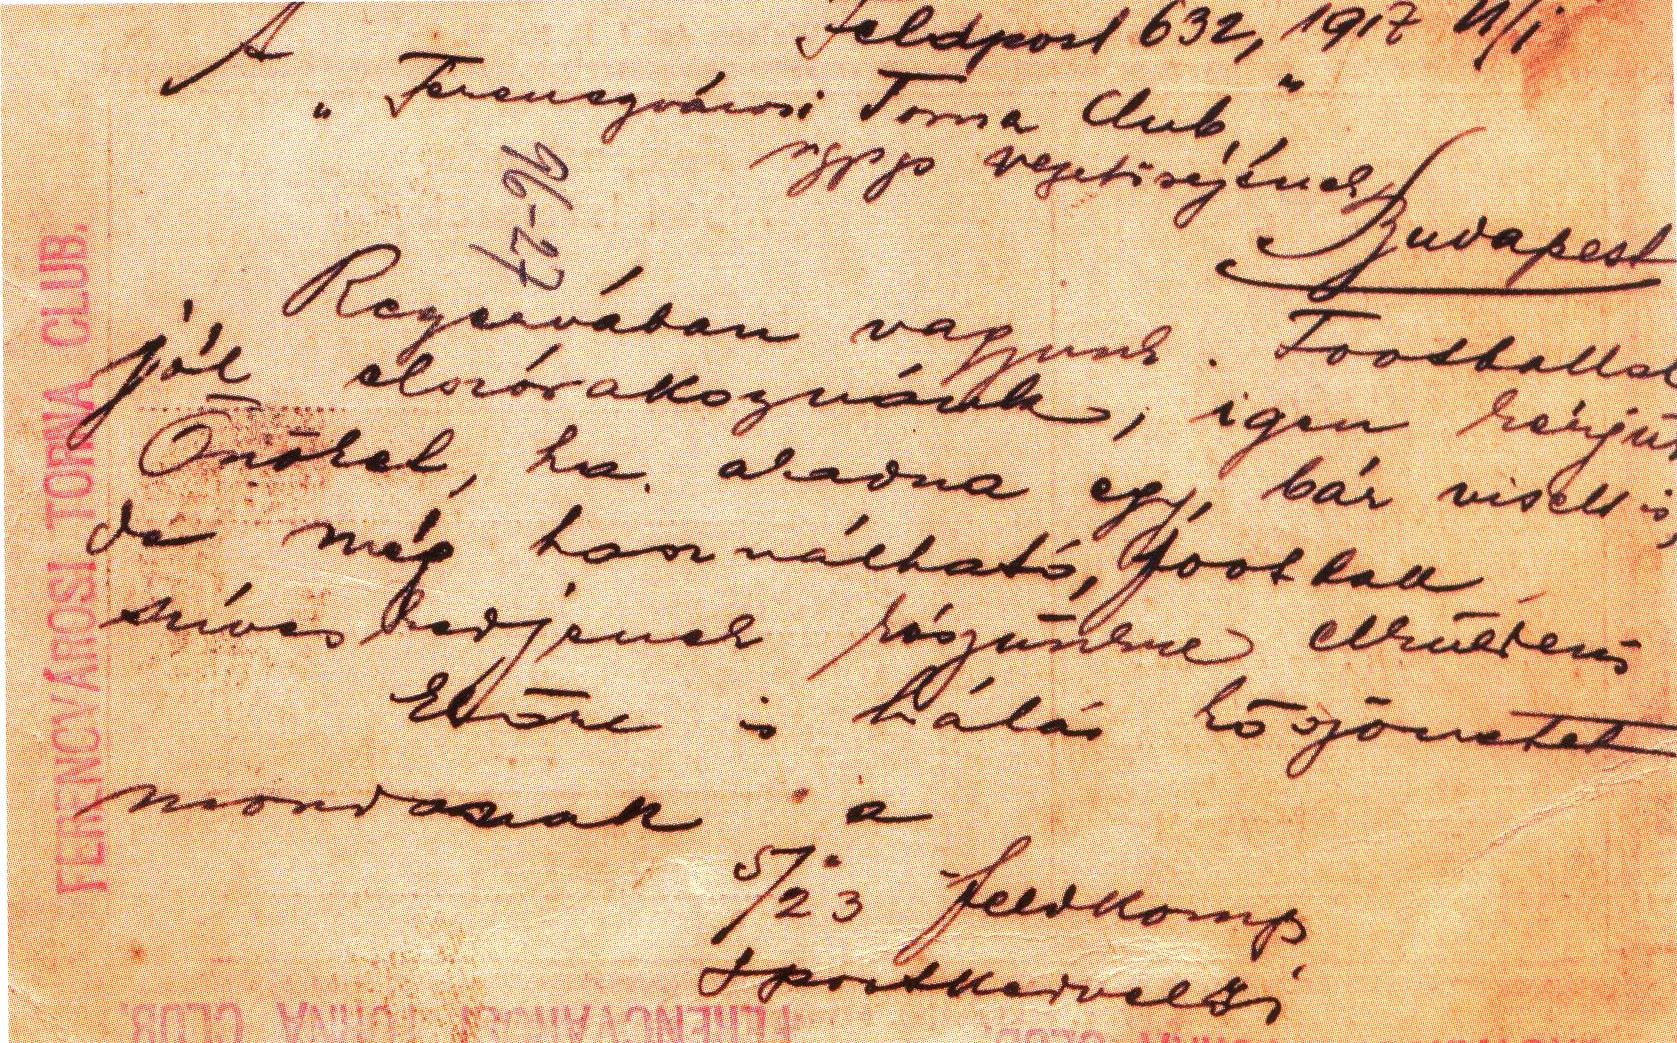 A Feldpost 632, 1917 II/1
„Ferenczvárosi Torna Club”
ngys vezetőségének
Budapest
Rezervában vagyunk. Footballal
jól elszórakoznánk, igen kérjük
Önöket, ha akadna egy, bár viselt is,
de még használható, football
szíveskedjenek részünkre elküldeni
Előre is hálás köszönetet
mondanak a
5/23 feldkomp
sportkedvelői
FERENCVÁROSI TORNA CLUB.
FERENCVÁROSI TORNA CLUB.